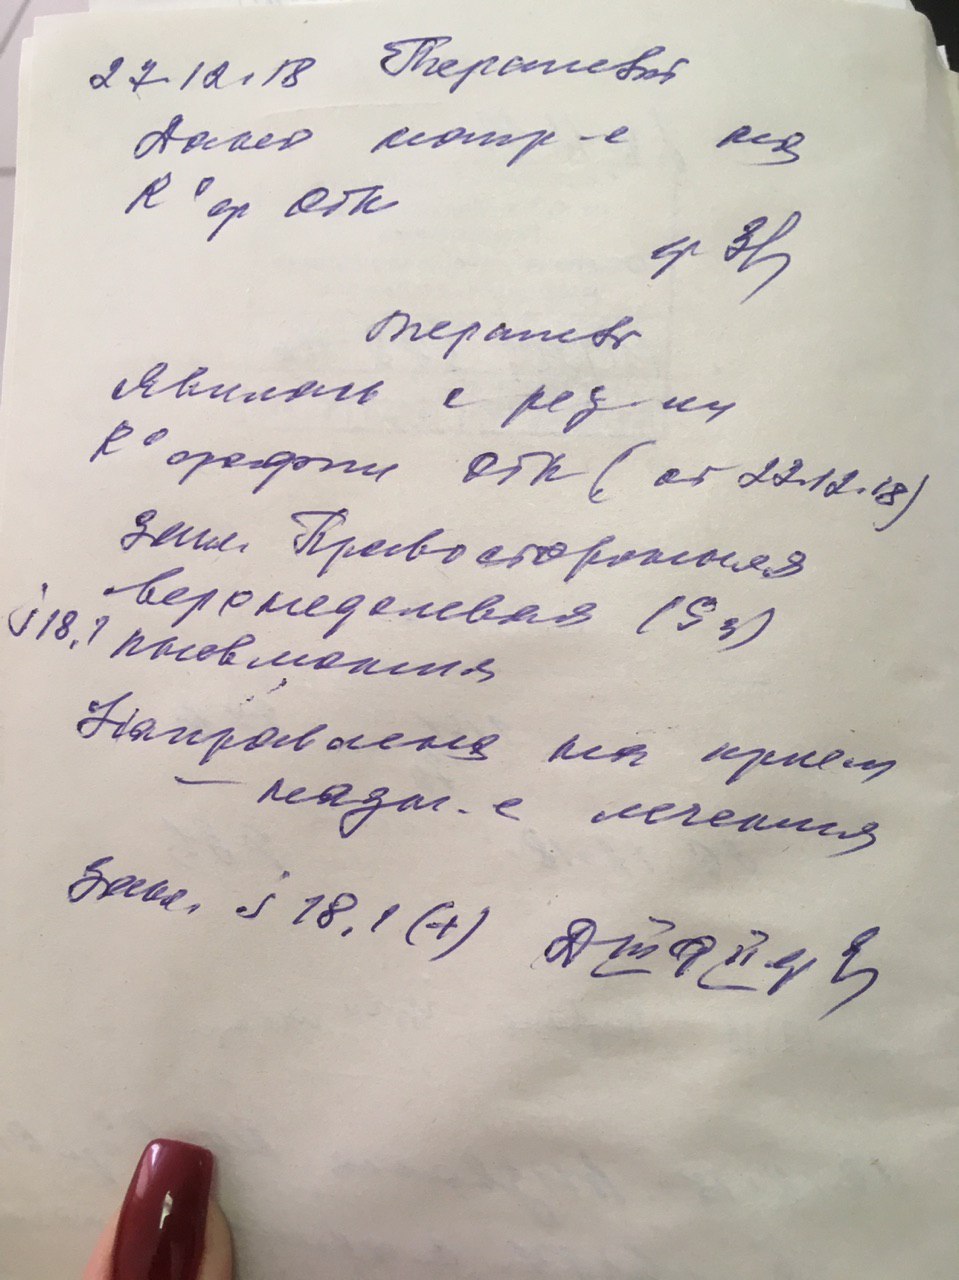 27.12.18 Терапевт
Дано напр-е на
R°гр ОГК
Терапевт
Явилась с рез-ми
R°графии ОГК (от 27.12.18)
Закл. Правосторонняя
верхнедолевая (S3)
j 18.1 пневмония
Направлена на прием
– назн-е лечения
Закл. j 18.1 (+) Д III Ф II